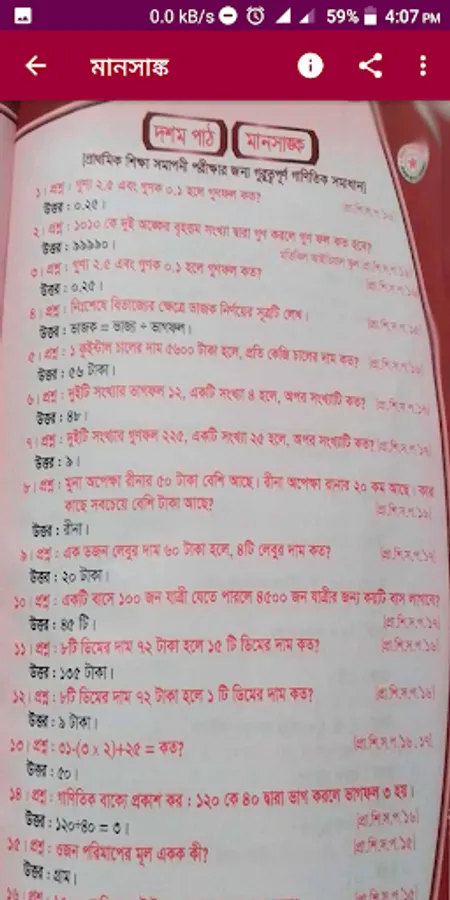 0.0 kB/s 59% 4:07 PM
মানসাঙ্ক
দশম পাঠ মানসাঙ্ক
[প্রাথমিক শিক্ষা সমাপনী পরীক্ষার জন্য গুরুত্বপূর্ণ গাণিতিক সমাধান]
১। প্রশ্ন : গুণ্য ২.৫ এবং গুণক ০.১ হলে গুণফল কত?
উত্তর : ০.২৫। [প্রা.শি.স.প.
২। প্রশ্ন : ১০১০ কে দুই অঙ্কের বৃহত্তম সংখ্যা দ্বারা গুণ করলে গুণ ফল কত হবে?
উত্তর : ৯৯৯৯০। মতিঝিল আইডিয়াল স্কুল
৩। প্রশ্ন : গুণ্য ২.৫ এবং গুণক ০.১ হলে গুণফল কত? [প্রা.শি.স.প.
উত্তর : ০.২৫।
৪। প্রশ্ন : নিঃশেষে বিভাজ্যের ক্ষেত্রে ভাজক নির্ণয়ের সূত্রটি লেখ। [প্রা.শি.স.প.
উত্তর : ভাজক = ভাজ্য ÷ ভাগফল।
৫। প্রশ্ন : ১ কুইন্টাল চালের দাম ৫৬০০ টাকা হলে, প্রতি কেজি চালের দাম কত? [প্রা.শি.স.প.
উত্তর : ৫৬ টাকা।
৬। প্রশ্ন : দুইটি সংখ্যার ভাগফল ১২, একটি সংখ্যা ৪ হলে, অপর সংখ্যাটি কত? [প্রা.শি.স.প.
উত্তর : ৪৮।
৭। প্রশ্ন : দুইটি সংখ্যার গুণফল ২২৫, একটি সংখ্যা ২৫ হলে, অপর সংখ্যাটি কত? [প্রা.শি.স.প.
উত্তর : ৯।
৮। প্রশ্ন : মুনা অপেক্ষা রীনার ৫০ টাকা বেশি আছে। রীনা অপেক্ষা রানার ২০ কম আছে। কার
কাছে সবচেয়ে বেশি টাকা আছে? [প্রা.শি.স.প.১৬]
উত্তর : রীনা।
৯। প্রশ্ন : এক ডজন লেবুর দাম ৬০ টাকা হলে, ৪টি লেবুর দাম কত? [প্রা.শি.স.প.১৭]
উত্তর : ২০ টাকা।
১০। প্রশ্ন : একটি বাসে ১০০ জন যাত্রী যেতে পারলে ৪৫০০ জন যাত্রীর জন্য কয়টি বাস লাগবে?
উত্তর : ৪৫ টি। [প্রা.শি.স.প.১৭]
১১। প্রশ্ন : ৮টি ডিমের দাম ৭২ টাকা হলে ১৫ টি ডিমের দাম কত? [প্রা.শি.স.প.১৬]
উত্তর : ১৩৫ টাকা।
১২। প্রশ্ন : ৮টি ডিমের দাম ৭২ টাকা হলে ১ টি ডিমের দাম কত? [প্রা.শি.স.প.১৬]
উত্তর : ৯ টাকা।
১৩। প্রশ্ন : ৩১-(৩ x ২)+২৫ = কত? [প্রা.শি.স.প.১৬, ১৭]
উত্তর : ৫০।
১৪। প্রশ্ন : গাণিতিক বাক্যে প্রকাশ কর : ১২০ কে ৪০ দ্বারা ভাগ করলে ভাগফল ৩ হয়।
উত্তর : ১২০÷৪০ = ৩। [প্রা.শি.স.প.১৬]
১৫। প্রশ্ন : ওজন পরিমাপের মূল একক কী? [প্রা.শি.স.প.১৫]
উত্তর : গ্রাম।